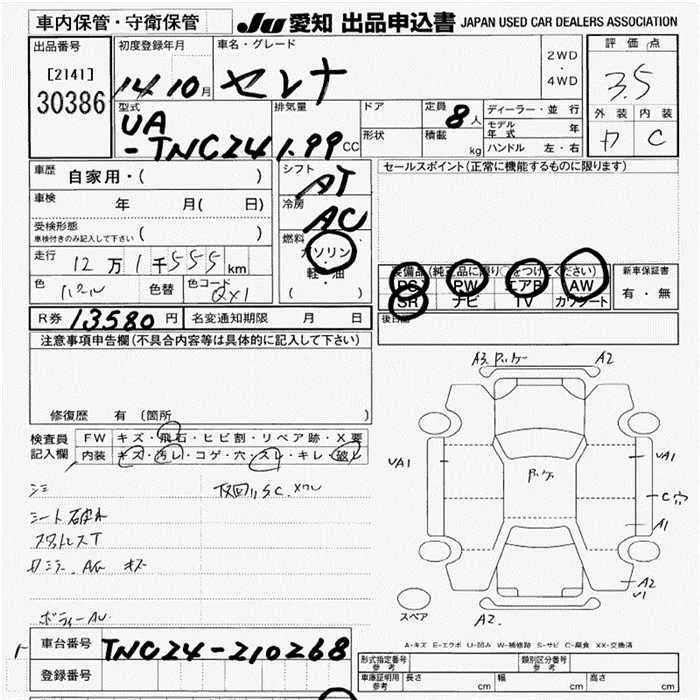 車内保管・守衛保管
JU 愛知 出品申込書 JAPAN USED CAR DEALERS ASSOCIATION
出品番号
[2141]
30386
初度登録年月
14 10 月
車名・グレード
セレナ
2WD
・
4WD
評価点
3.5
外装 内装
C
型式
UA
-TNC24
排気量
1.99 CC
ドア
形状
定員 8 人
積載 kg
ディーラー・並行
モデル年式 年
ハンドル 左・右
車歴 自家用・( )
車検 年 月( 日)
受検形態
車検付きのみ記入して下さい ( )
走行 12 万 1 千 555 km
色 パール 色替 色コード QX1
シフト
AT
冷房
AC
燃料
ガソリン
軽・油
( )
セールスポイント(正常に機能するものに限ります)
装備品(純正品に限り○をつけてください)
PS PW エアB AW
SR ナビ TV カワシート
新車保証書
有・無
後日品
R券 13,580 円 名変通知期限 月 日
注意事項申告欄(不具合内容等は具体的に記入して下さい)
修復歴 有 (箇所 )
検査員
記入欄
FW キズ・飛石・ヒビ割・リペア跡・X要
内装 キズ・汚レ・コゲ・穴・スレ・キレ・破レ
シート破れ
ボディーAU
A3 A2
UA1 UA1
C
A1
A2
U1
A2
スペア
A-キズ E-エクボ U-凹み W-補修跡 S-サビ C-腐食 XX-交換済
車台番号 TNC24-210268
登録番号
形式指定番号
参考
類別区分番号
参考
車庫証明用
参考
長さ cm 幅 cm 高さ cm